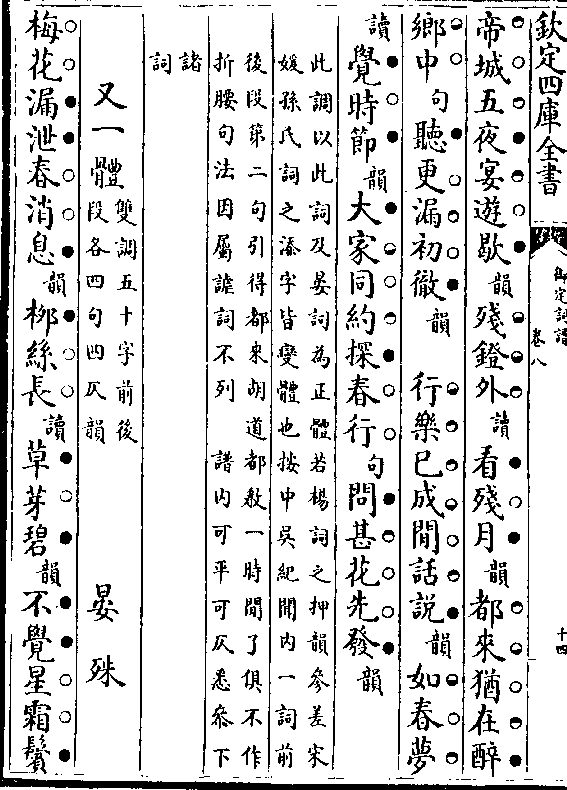 欽定四庫全書
御定詞譜 卷八
十四
帝城五夜宴遊歇韻殘鐙外讀看殘月韻都來猶在醉
鄉中句聽更漏初徹韻 行樂已成閒話說韻如春夢
讀覺時節韻大家同約探春行句問甚花先發韻
此調以此詞及晏詞為正體若楊詞之押韻參差宋
媛孫氏詞之添字皆變體也按中吳紀聞內一詞前
後段第二句引得都來胡道都教一時閒了俱不作
折腰句法因屬諢詞不列 譜內可平可仄悉參下
諸詞
又一體雙調五十字前後
段各四句四仄韻 晏殊
梅花漏泄春消息韻柳絲長讀草芽碧韻不覺星霜鬢